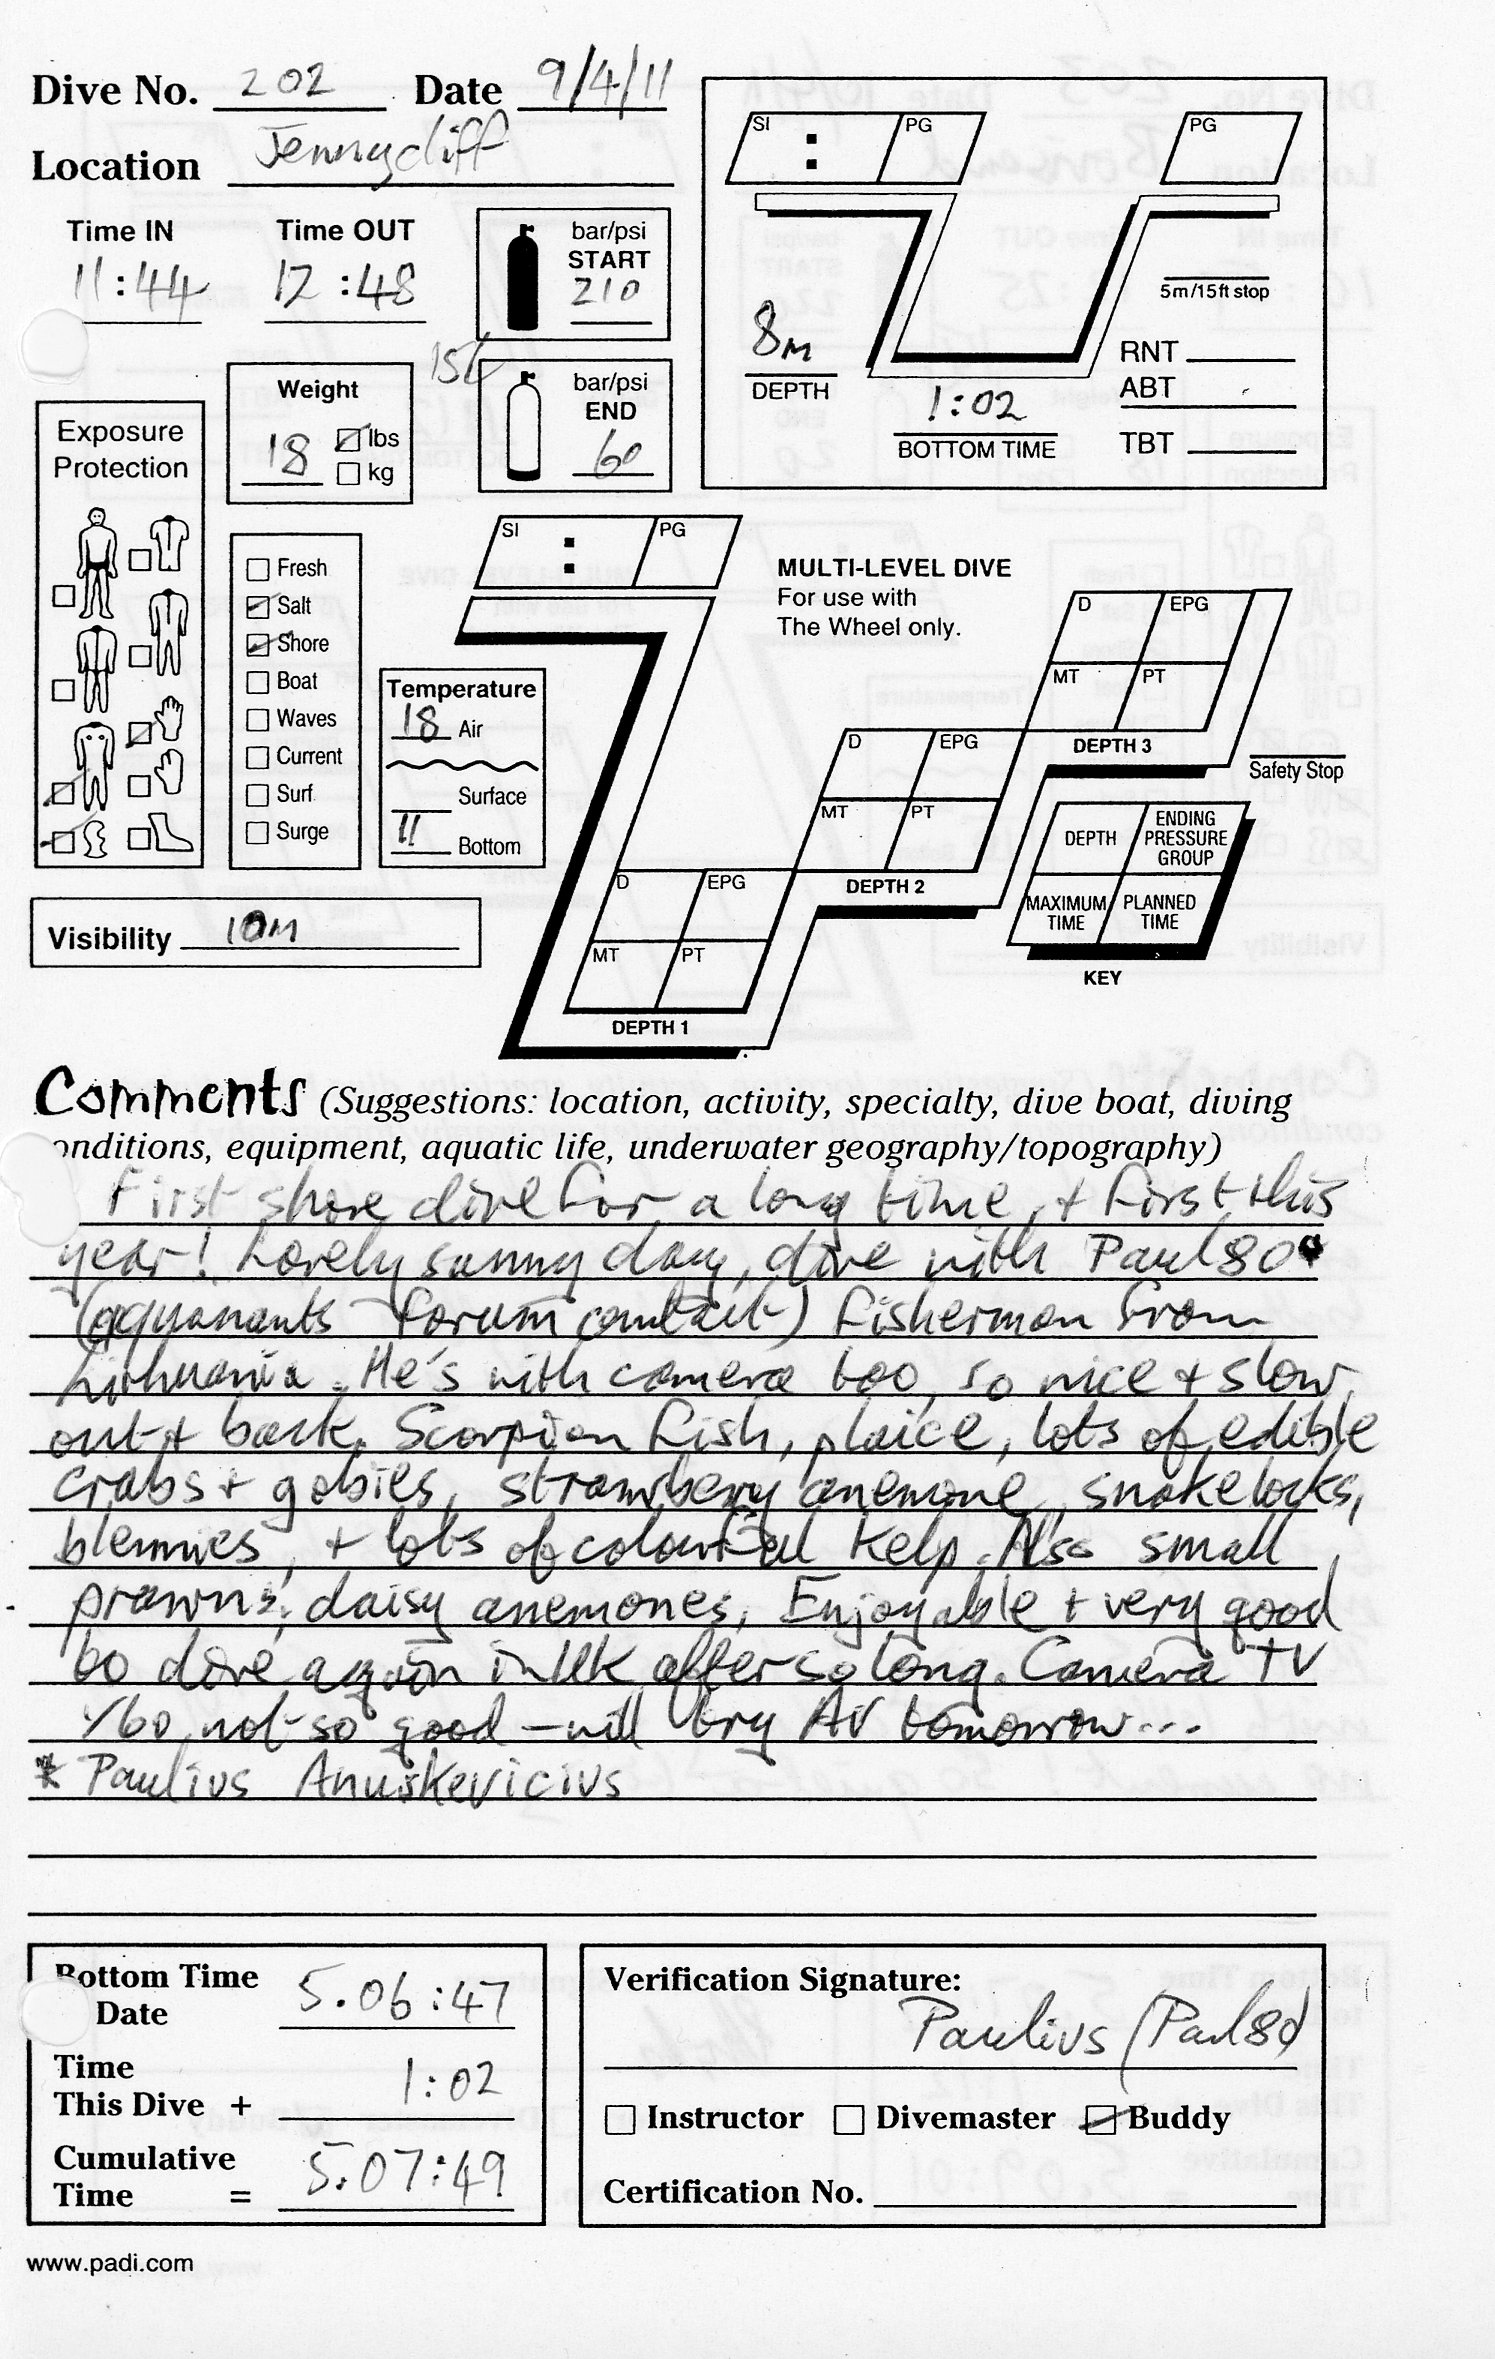 Dive No. 202 Date 9/4/11
Location Jennycliff
Time IN Time OUT
11:44 12:48
bar/psi
START
210
15L
bar/psi
END
60
Weight
18 lbs
kg
Exposure
Protection
Fresh
Salt
Shore
Boat
Waves
Current
Surf
Surge
Temperature
18 Air
Surface
11 Bottom
Visibility 10m
SI : PG
PG
8m
DEPTH
1:02
BOTTOM TIME
5m/15ft stop
RNT
ABT
TBT
SI : PG
MULTI-LEVEL DIVE
For use with
The Wheel only.
D EPG
MT PT
DEPTH 3
Safety Stop
D EPG
MT PT
DEPTH 2
D EPG
MT PT
DEPTH 1
DEPTH
ENDING
PRESSURE
GROUP
MAXIMUM
TIME
PLANNED
TIME
KEY
Comments (Suggestions: location, activity, specialty, dive boat, diving
onditions, equipment, aquatic life, underwater geography/topography)
First shore dive for a long time, + first this
year! Lovely sunny day, dive with Paul80*
(aquanauts forum contact) fisherman from
Lithuania. He's with camera too, so nice + slow,
out + back. Scorpion fish, plaice, lots of edible
crabs + gobies, strawberry anemone, snakelocks,
blennies, + lots of colourful kelp. Also small
prawns, daisy anemones, Enjoyable + very good
to dive again in UK after so long. Camera TV
1/60 not so good – will try AV tomorrow...
* Paulius Anuskevicius
Bottom Time
Date 5.06:47
Time
This Dive + 1:02
Cumulative
Time = 5.07:49
Verification Signature:
Paulius (Paul80)
Instructor Divemaster Buddy
Certification No.
www.padi.com